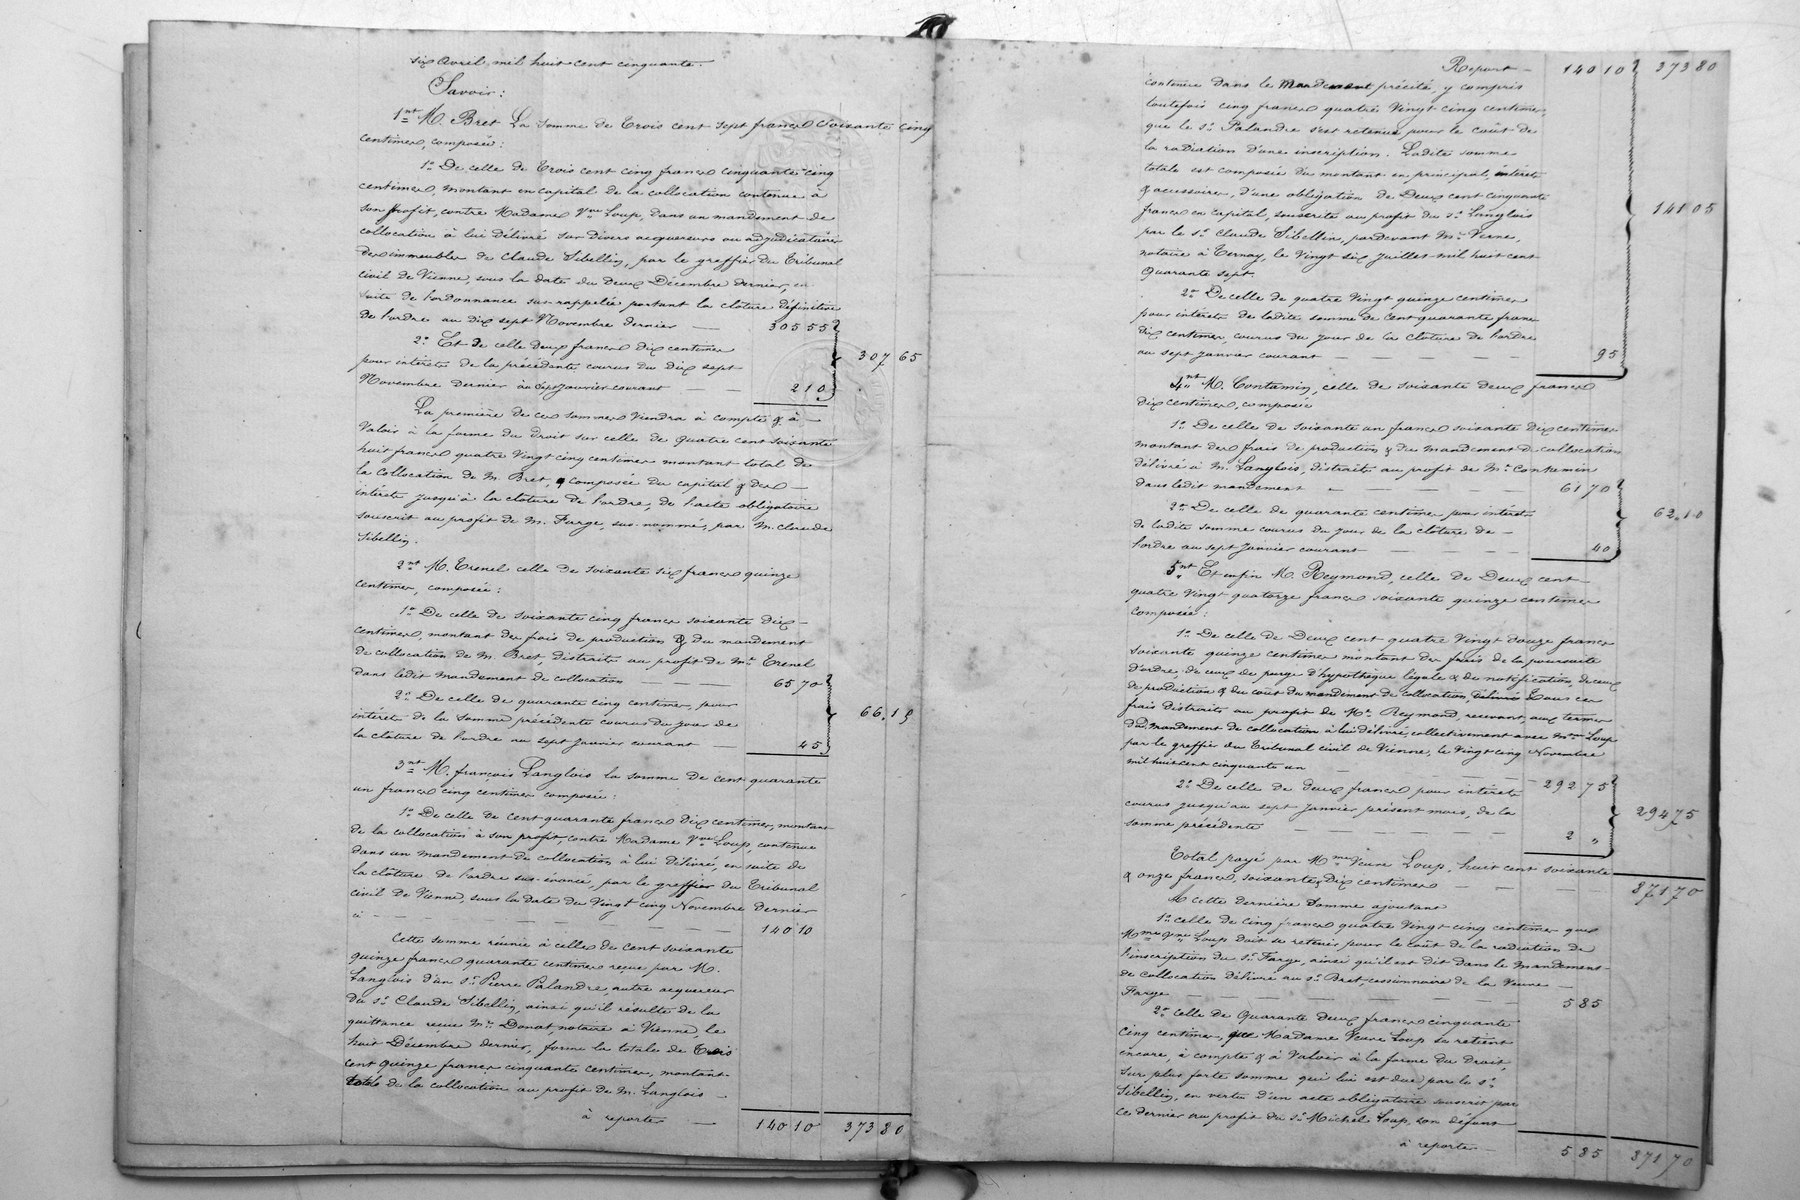 six Avril mil huit cent cinquante.
Savoir :
1nt M. Bret La somme de Trois cent sept francs soixante cinq
centimes, composée :
1° De celle de Trois cent cinq francs cinquante cinq
centimes, montant en capital de la collocation contenue à
son profit, contre Madame Vve Loup, dans un mandement de
collocation à lui délivré sur divers acquereurs ou adjudicataires
des immeubles de Claude Sibellin, par le greffier du Tribunal
civil de Vienne, sous la date du deux Décembre dernier, en
suite de l'ordonnance sus-rappelée portant la clôture définitive
de l'ordre au dix sept Novembre dernier — 305 55
2° Et de celle deux francs dix centimes
pour intérêts de la précédente courus du dix sept
Novembre dernier au sept janvier courant — — 2 10
307 65
La première de ces sommes viendra à compte & à
valoir à la forme du droit sur celle de quatre cent soixante
huit francs quatre vingt cinq centimes montant total de
la collocation de M. Bret, composée du capital & des
intérêts jusqu'à la clôture de l'ordre, de l'acte obligatoire
souscrit au profit de M. Farge, sus-nommé, par M. Claude
Sibellin.
2nt M. Trenel celle de soixante six francs quinze
centimes, composée :
1° De celle de soixante cinq francs soixante dix
centimes, montant des frais de production & du mandement
de collocation de M. Bret, distraits au profit de Me Trenel
dans ledit mandement de collocation — — — 65 70
2° De celle de quarante cinq centimes, pour
intérêts de la somme précédente courus du jour de
la clôture de l'ordre au sept janvier courant — 45
66.15
3nt M. françois Langlois la somme de cent quarante
un francs cinq centimes composée :
1° De celle de cent quarante francs dix centimes, montant
de la collocation à son profit, contre Madame Vve Loup, contenue
dans un mandement de collocation à lui délivré, en suite de
la clôture de l'ordre sus-énoncé, par le greffier du Tribunal
civil de Vienne, sous la date du vingt cinq Novembre dernier
ci — — — — — — — — 140 10
Cette somme réunie à celle de cent soixante
quinze francs quarante centimes reçue par M.
Langlois d'un sr. Pierre Palandre, autre acquereur
du sr. Claude Sibellin, ainsi qu'il résulte de la
quittance reçue Me Donat, notaire à Vienne, le
huit Décembre dernier, forme la totale de Trois
cent quinze francs cinquante centimes, montant
total de la collocation au profit de M. Langlois —
à reporter — 140 10 373 80
Report — 140 10 373 80
contenue dans le Mandement précité, y compris
toutefois cinq francs quatre vingt cinq centimes,
que le sr. Palandre s'est retenue pour le coût de
la radiation d'une inscription. Ladite somme
totale est composée du montant en principal, intérêts
& accessoires, d'une obligation de Deux cent cinquante
francs en capital, souscrite au profit du sr. Langlois
par le sr. Claude Sibellin, pardevant Me Verne,
notaire à Ternay, le vingt six juillet mil huit cent
quarante sept.
141 05
2° De celle de quatre vingt quinze centimes
pour intérêts de ladite somme de cent quarante francs
dix centimes, courus du jour de la clôture de l'ordre
au sept janvier courant — — — — 95
4nt M. Contamin, celle de soixante deux francs
dix centimes, composée
1° De celle de soixante un francs soixante dix centimes
montant des frais de production & du mandement de collocation
délivré à M. Langlois, distraits au profit de Me Contemin
dans ledit mandement — — — — — 61 70
2° De celle de quarante centimes pour intérêts
de ladite somme courus du jour de la clôture de —
l'ordre au sept janvier courant — — — — 40
62.10
5nt Et enfin M. Reymond, celle de Deux cent
quatre vingt quatorze francs soixante quinze centimes
composée :
1° De celle de Deux cent quatre vingt douze francs
soixante quinze centimes montant des frais de la poursuite
d'ordre, de ceux de purge d'hypothèque légale & de notification, de ceux
de production & du coût du mandement de collocation, délivrés Tous ces
frais distraits au profit de Me Reymond, recevant, aux termes
du mandement de collocation à lui délivré, collectivement avec Mme Loup
par le greffier du Tribunal civil de Vienne, le vingt cinq Novembre
mil huit cent cinquante un — — — 292 75
2° De celle de deux francs pour intérêts
courus jusqu'au sept janvier présent mois, de la
somme précédente — — — — — — 2 "
294 75
Total payé par Mme Veuve Loup, huit cent soixante
& onze francs, soixante & dix centimes — — — 871 70
A cette dernière somme ajoutant
1° celle de cinq francs quatre vingt cinq centimes que
Mme Vve Loup doit se retenir pour le coût de la radiation de
l'inscription du sr. Farge, ainsi qu'il est dit dans le mandement
de collocation délivré au sr. Bret, cessionnaire de la Veuve —
Farge — — — — — — — — 5 85
2° celle de Quarante deux francs cinquante
cinq centimes, que Madame Veuve Loup se retient
encore, à compte & à valoir à la forme du droit,
sur plus forte somme qui lui est due par le sr.
Sibellin, en vertu d'un acte obligatoire souscrit par
ce dernier au profit du sr. Michel Loup, son défunt
à reporter — 5 85 871 70